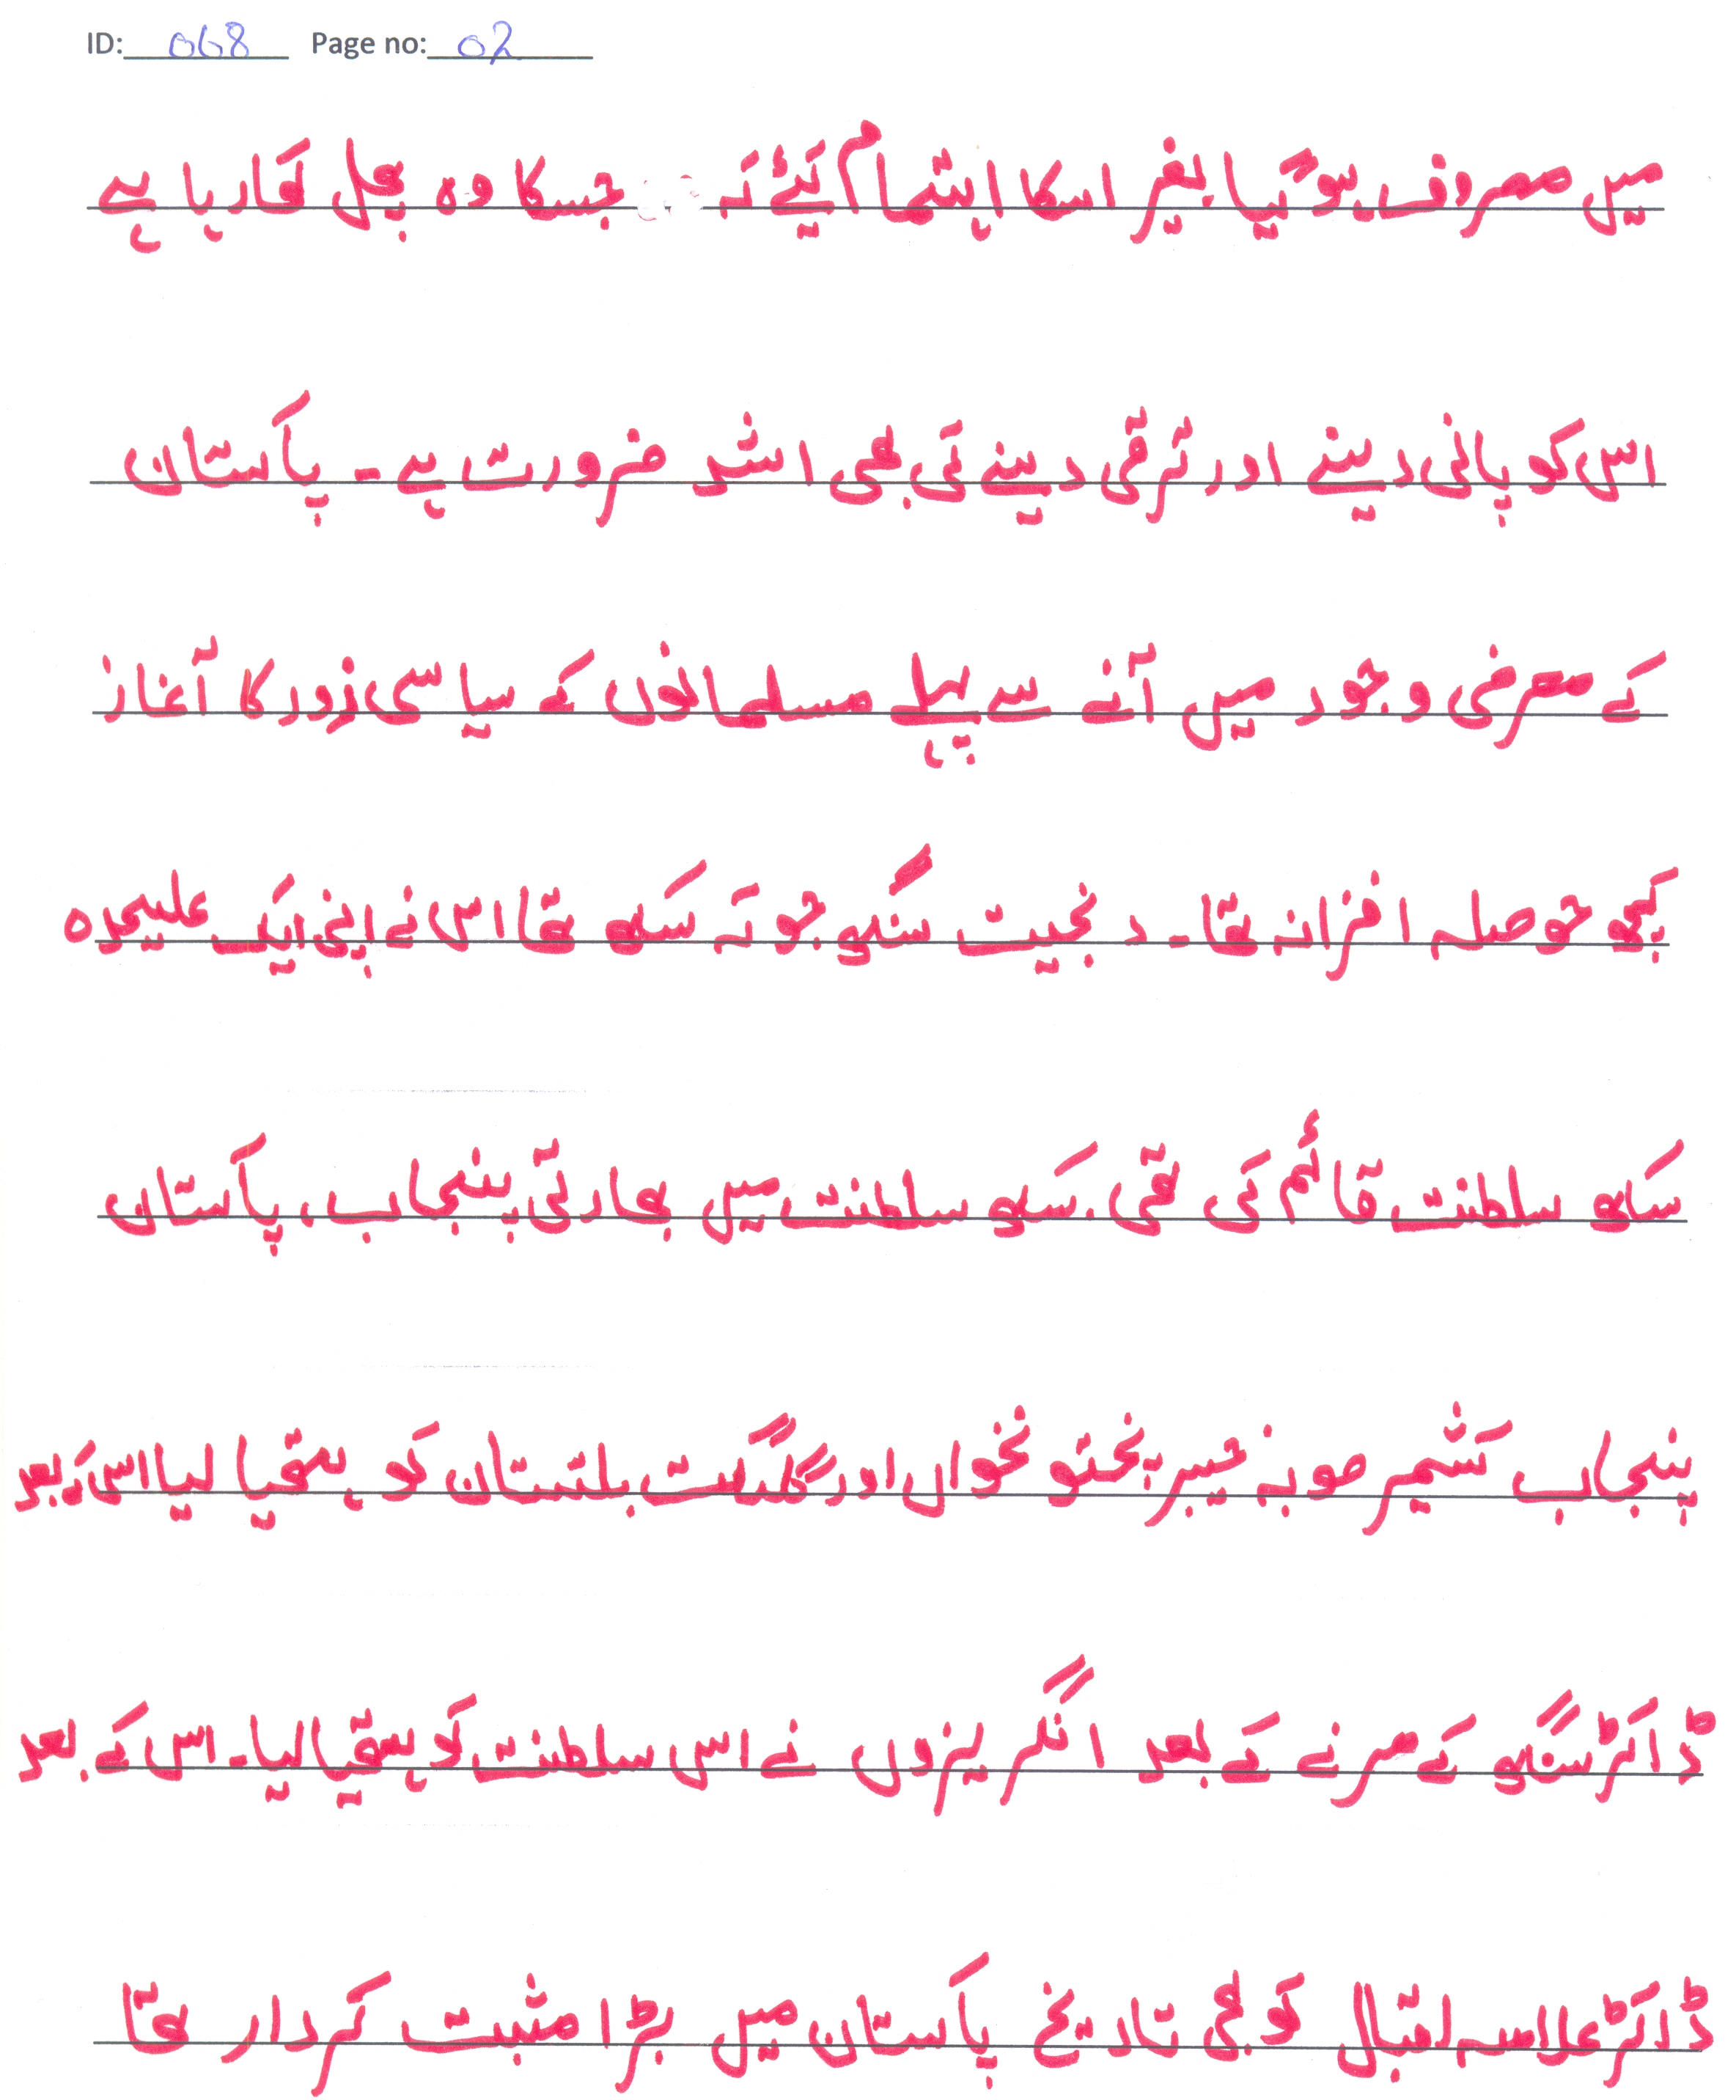 ID: 068 Page no: 02
میں مصروف ہوگیا بغیر اسکا اہتمام کیئے کہ جسکا وہ پھل کھا رہا ہے
اس کو پانی دینے اور ترقی دینے کی بھی اشد ضرورت ہے۔ پاکستان
کے معرضی وجود میں آنے سے پہلے مسلمانوں کے سیاسی زور کا آغاز
کچھ حوصلہ افزانہ تھا۔ رنجیت سنگھ جو کہ سکھ تھا اس نے اپنی ایک علیحدہ
سکھ سلطنت قائم کی تھی۔ سکھ سلطنت میں بھارتی پنجاب، پاکستان
پنجاب کشمیر صوبہ خیبر پختو نخواں اور گلگت بلتستان کو ہتھیا لیا اس کے بعد
ڈاکٹر سنگھ کے مرنے کے بعد انگریزوں نے اس سلطنت کو ہتھیا لیا۔ اس کے بعد
ڈاکٹر علامہ اقبال کو بھی تاریخ پاکستان میں بڑا مثبت کردار تھا